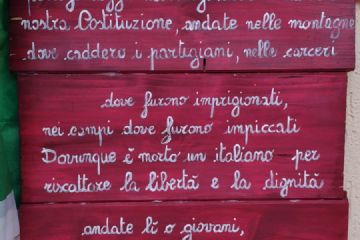 nostra Costituzione, andate nelle montagne
dove caddero i partigiani, nelle carceri
dove furono imprigionati,
nei campi dove furono impiccati
Dovunque è morto un italiano per
riscattare la libertà e la dignità
andate lì o giovani,